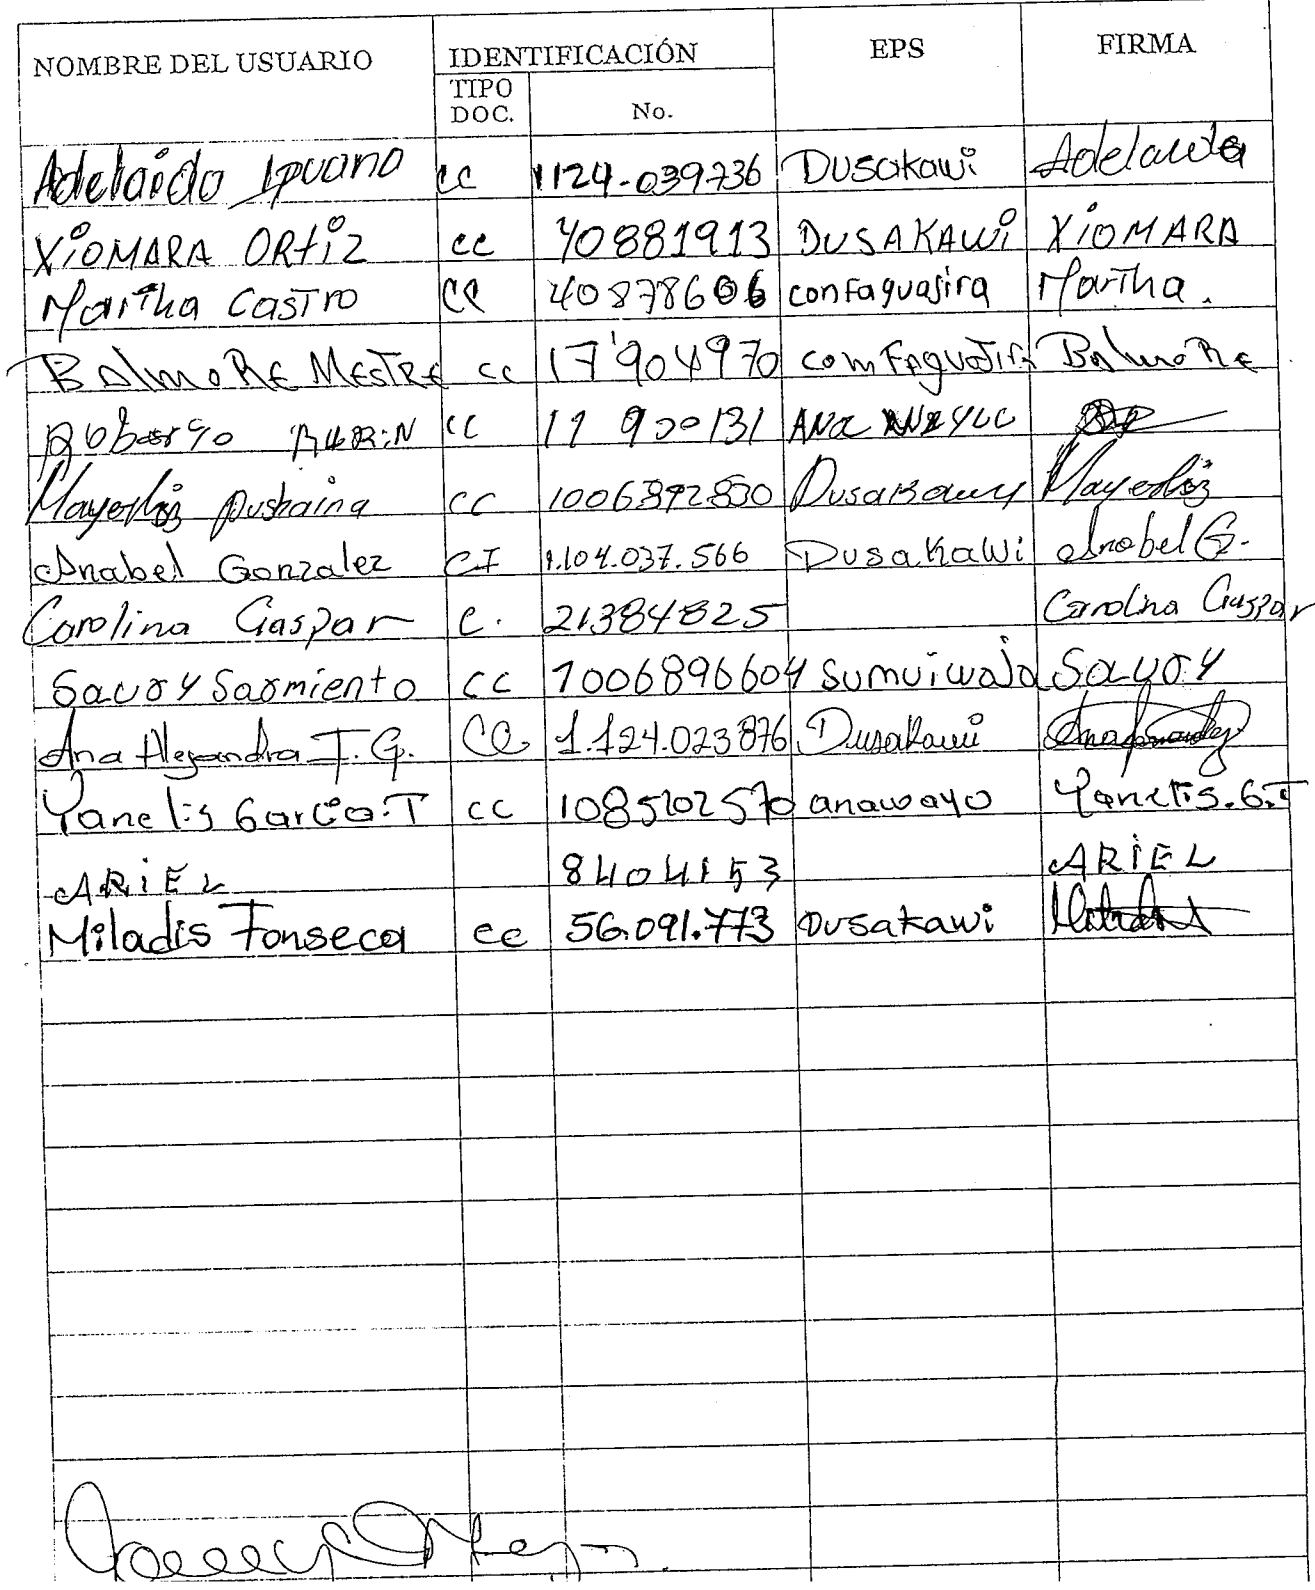 NOMBRE DEL USUARIO IDENTIFICACIÓN EPS FIRMA
TIPO DOC. No.
Adelaida Ipuana cc 1124.039736 Dusakawi Adelaida
XiOMARA ORtiz cc 40881913 DUSAKAWi XiOMARA
Martha Castro CC 40878606 confaguajira Martha.
BAlmoRE MESTRE cc 17'904970 comFAguajira BAlmoRE
Roberto cc ANA
Mayerlis pushaina cc 1006892830 Dusakawy Mayerlis
Anabel Gonzalez CI 1.104.037.566 Dusakawi Anabel G.
Carolina Gaspar C. 21384825 Carolina Gaspar
Sauoy Sarmiento cc 1006896604 Sumuiwaja Sauoy
Ana Alejandra F. G. CC 1.124.023876 Dusakawi
Yanelis Garcia.T cc 1085102570 anawayo Yanelis.G.T
ARiEL 8404153 ARiEL
Miladis Fonseca cc 56.091.773 Dusakawi